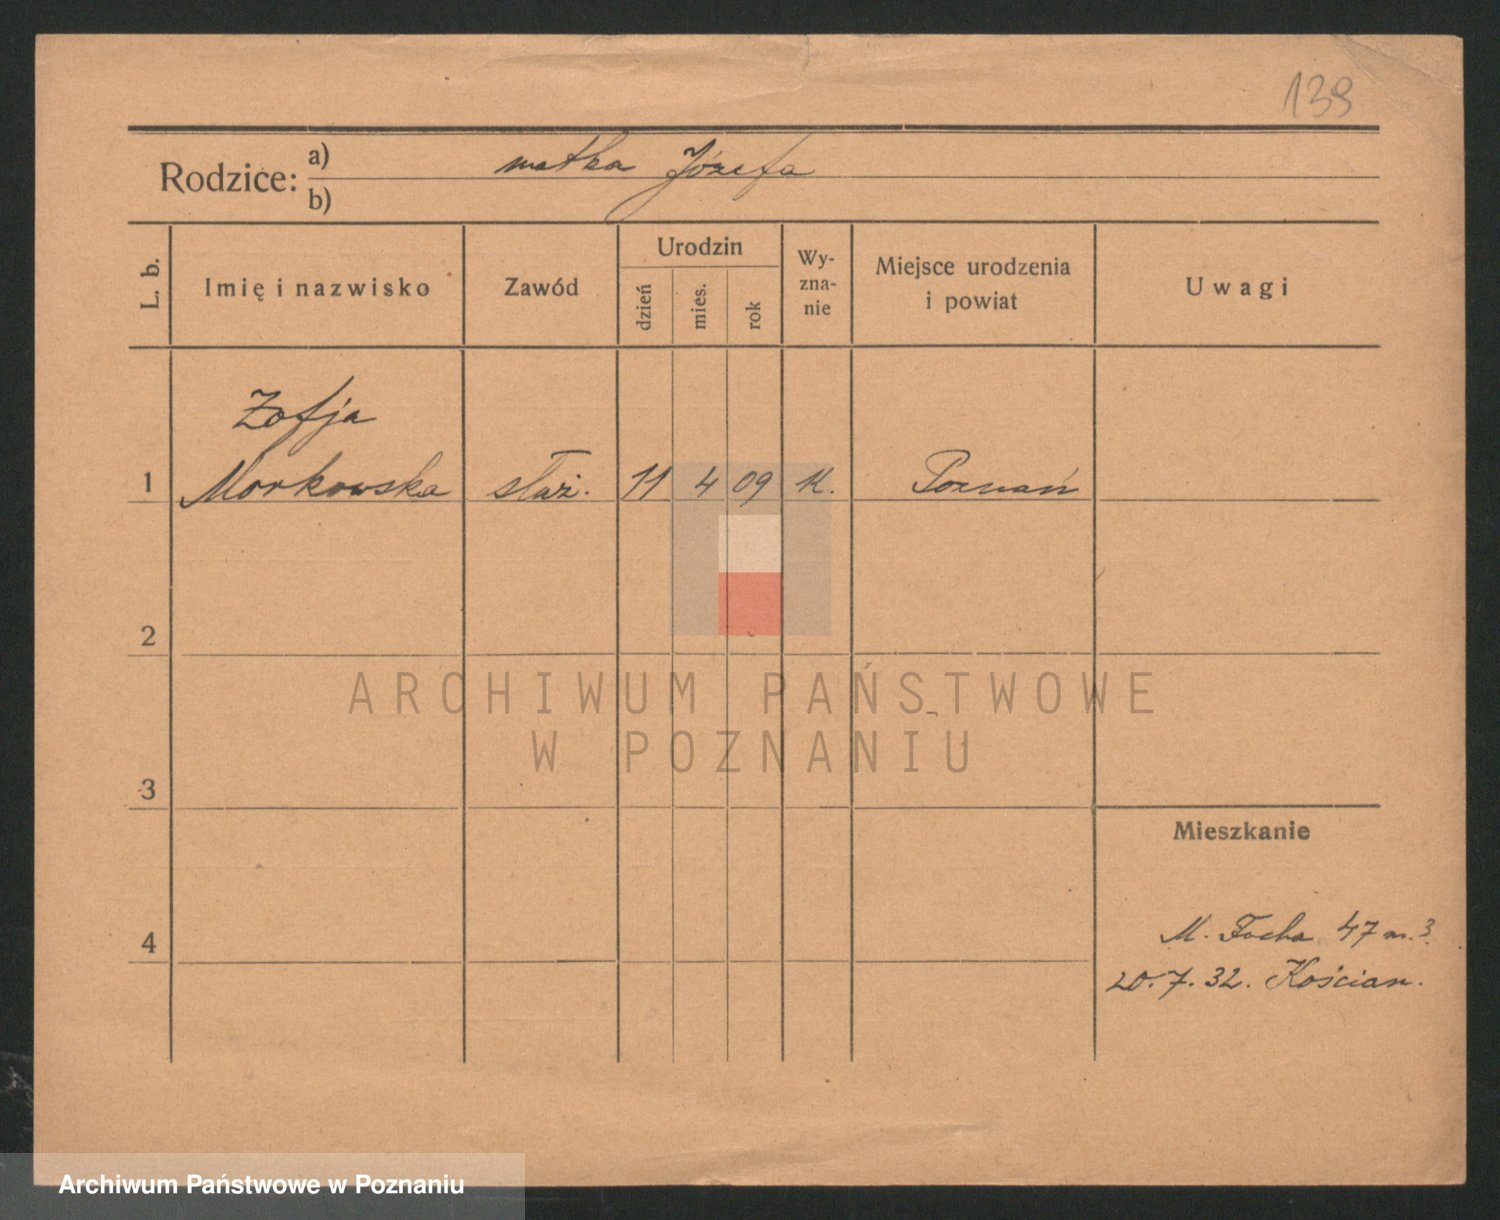 139
Rodzice: a) matka Józefa
b)
L. b.
Imię i nazwisko
Zawód
Urodzin
dzień
mies.
rok
Wy-
zna-
nie
Miejsce urodzenia
i powiat
Uwagi
Zofja
1 Morkowska służ. 11 4 09 k. Poznań
2
ARCHIWUM PAŃSTWOWE
W POZNANIU
3
Mieszkanie
4
M. Focha 47 m. 3.
20. 7. 32. Kościan.
Archiwum Państwowe w Poznaniu